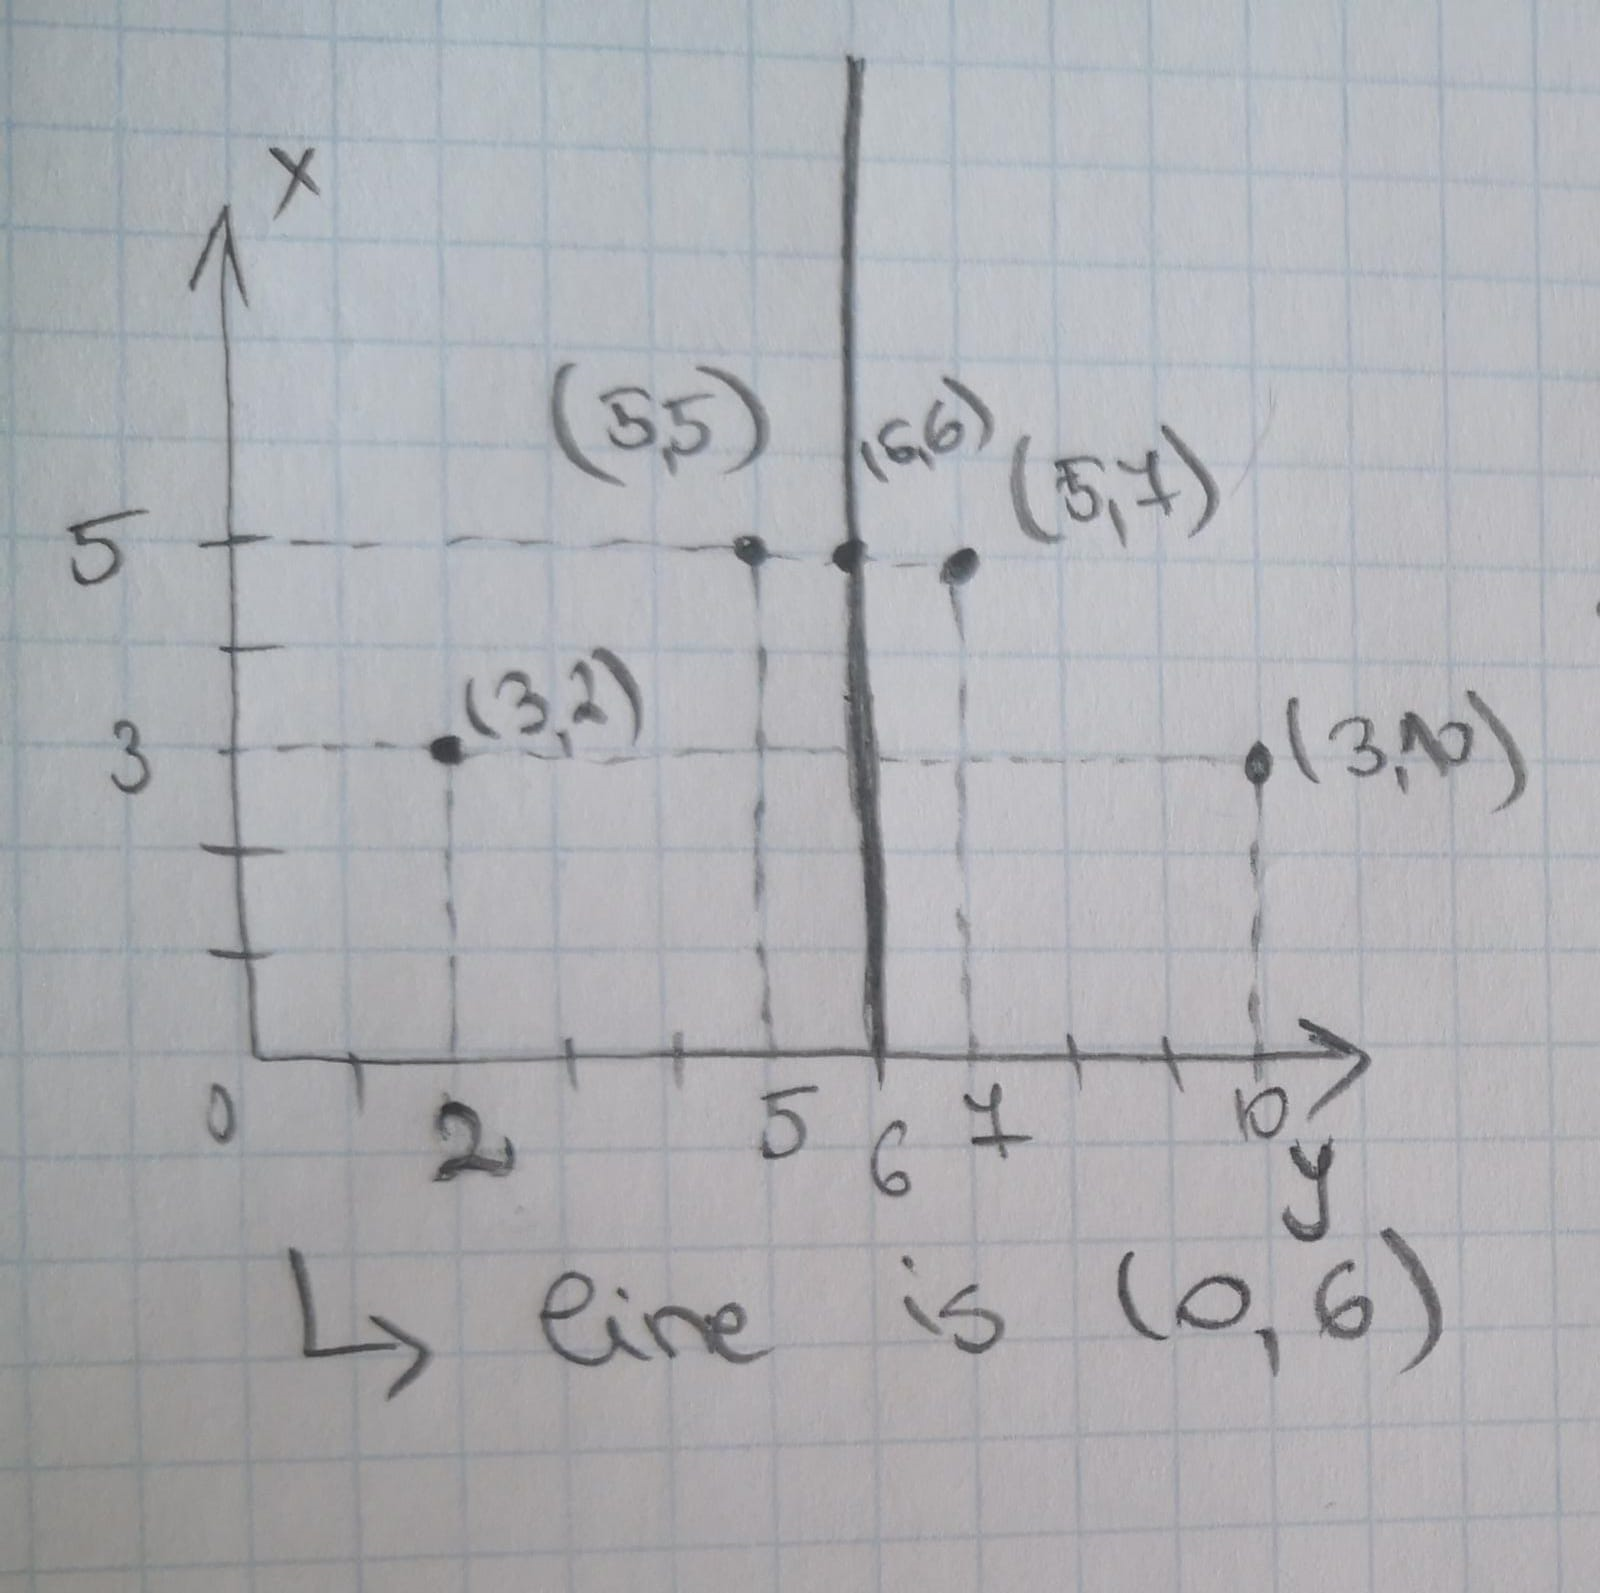 x
(5,5)
,6)
(5,7)
5
(3,2)
3
(3,10)
0 2 5 6 7 10
y
line is (0,6)